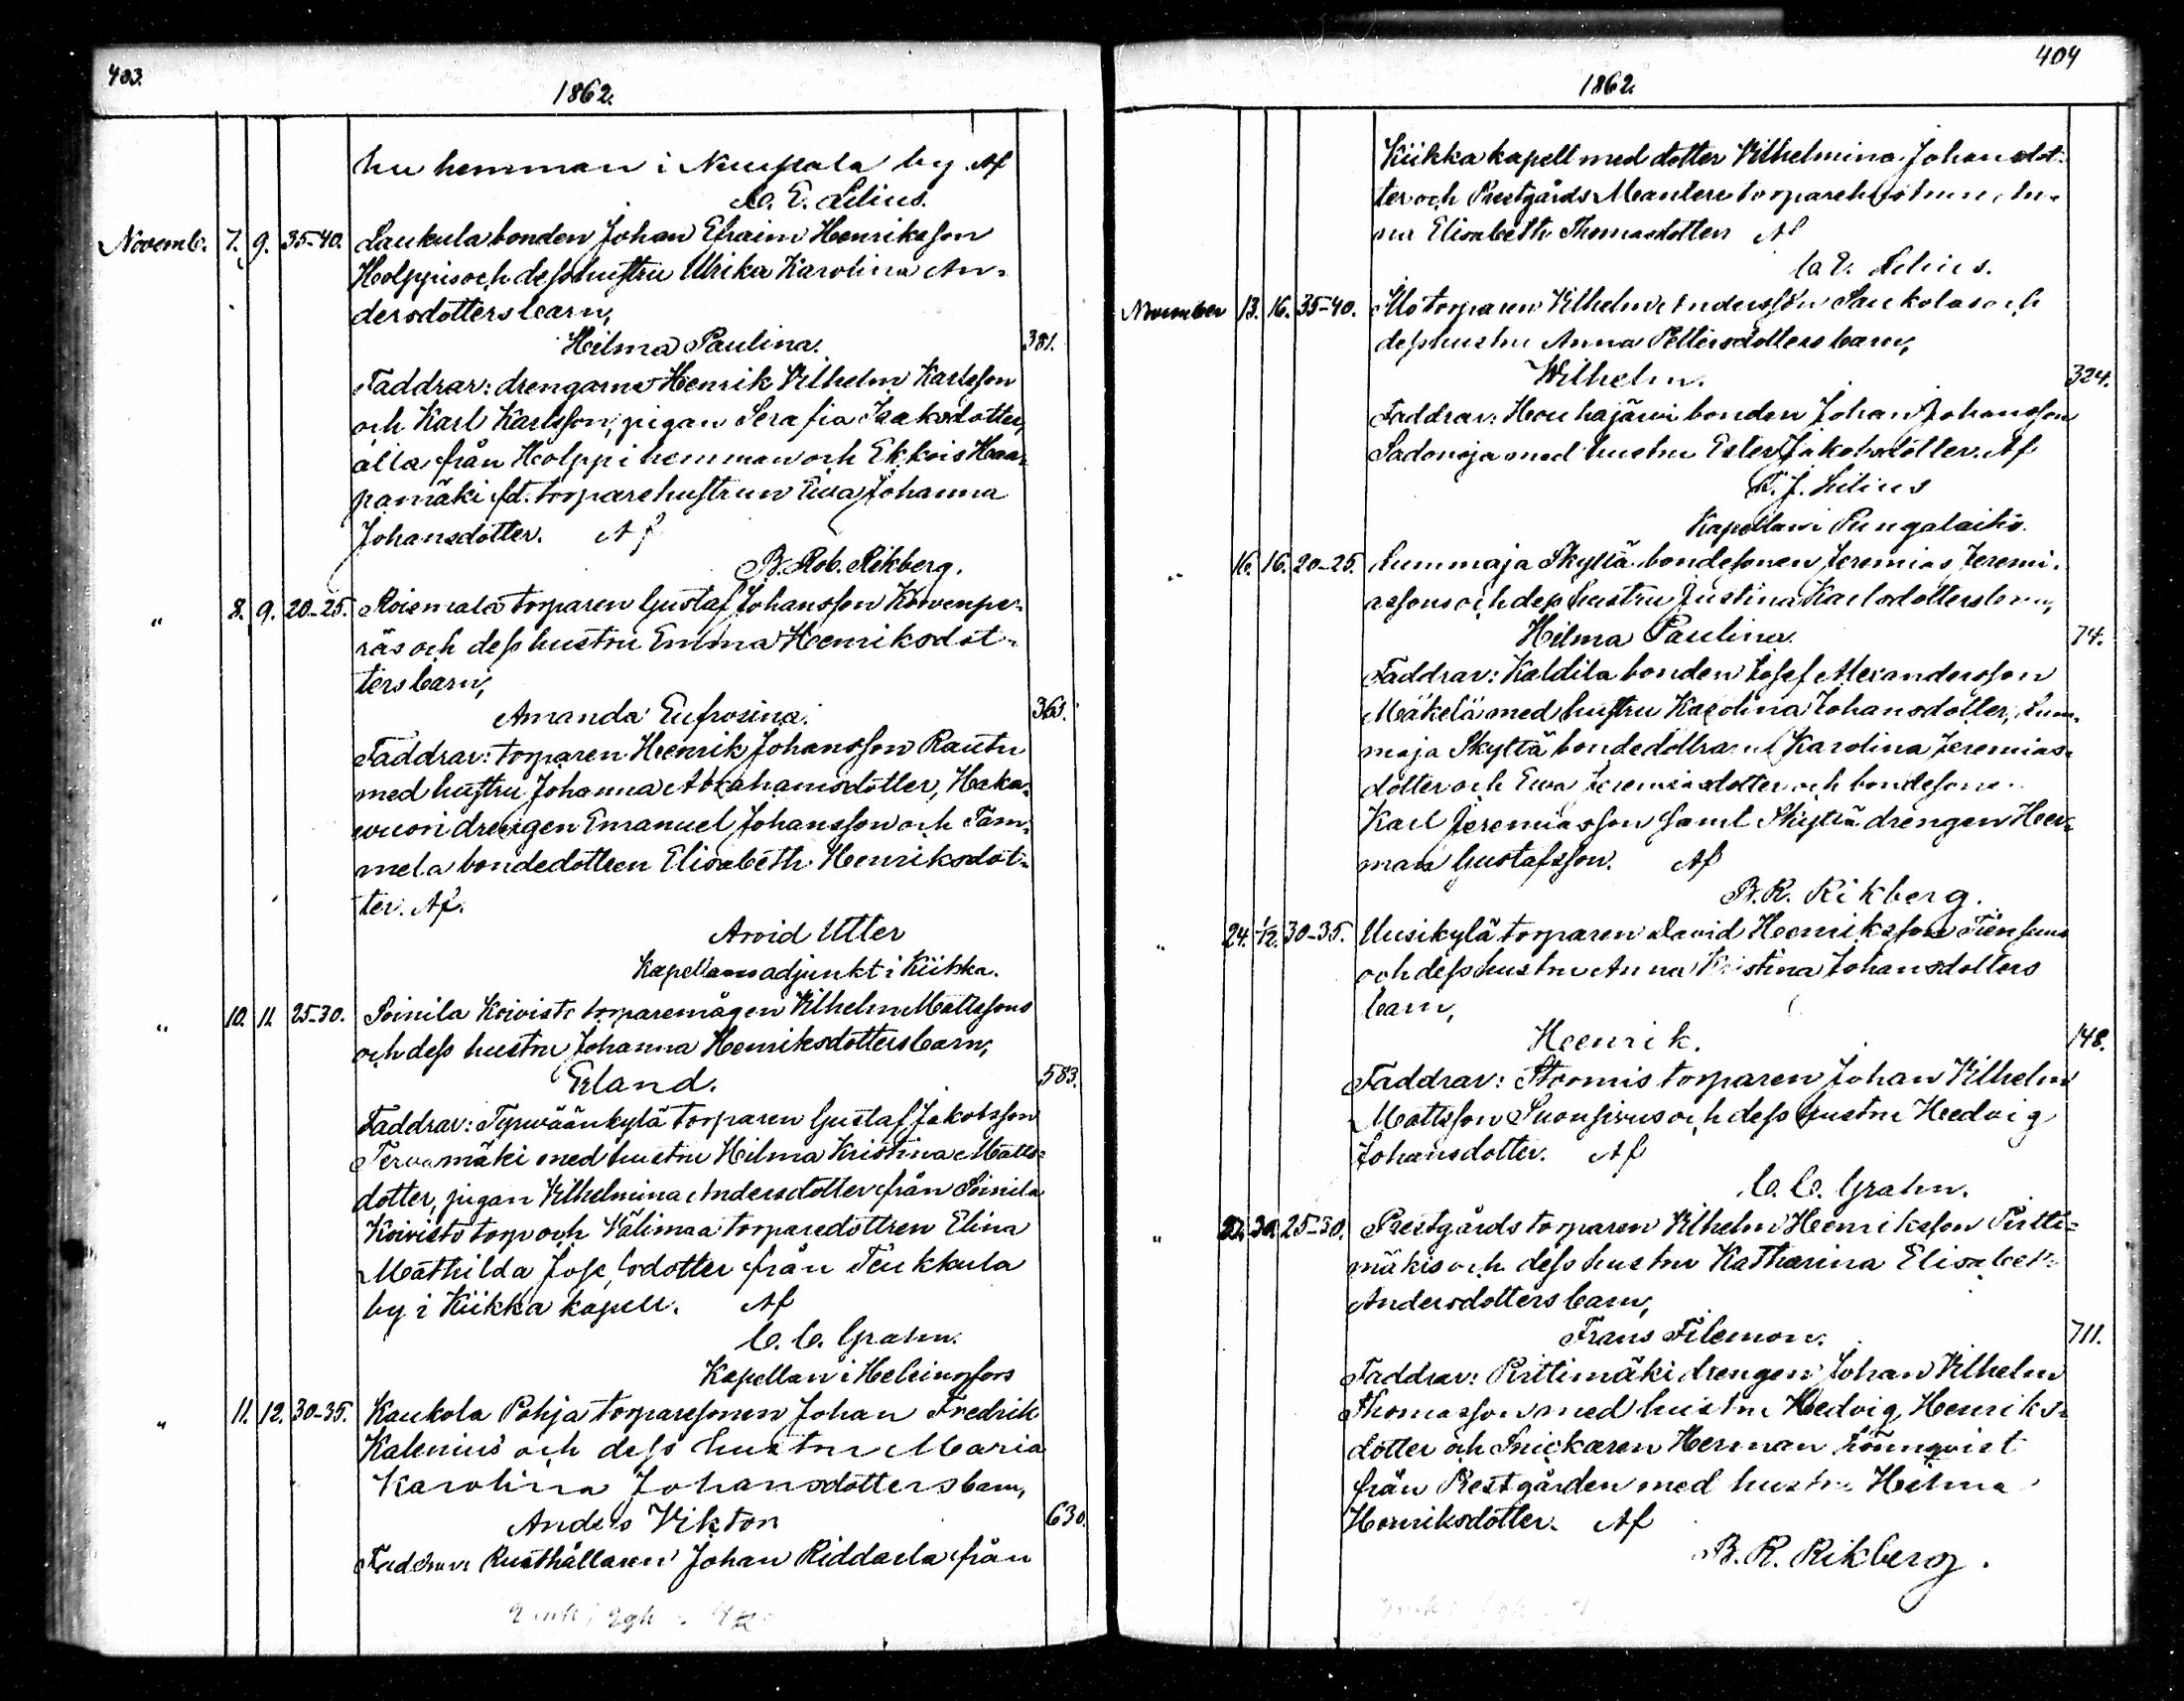 403.
1862.
hu hemman i Nuupala by. Af
C. E. Lilius.
Novemb. 7. 9. 35-40. Laukula bonden Johan Efraim Henriksson
Holppis och dess hustru Ulrika Karolina An-
dersdotters barn,
Hilma Paulina. 381.
Faddrar: drengarne Henrik Vilhelm Karlsson
och Karl Karlsson, pigan Serafia Isaksdotter,
alla från Holppi hemman och Ekkois Haa-
pamäki fd. torparehustrun Eva Johanna
Johansdotter. Af
B. Rob. Rikberg.
" 8. 9. 20-25. Roismala torparen Gustaf Johansson Korvenpe-
räs och dess hustru Emma Henriksdot-
ters barn,
Amanda Eufrosina. 363.
Faddrar: torparen Henrik Johansson Rautu
med hustru Johanna Abrahamsdotter, Haka-
vuori drengen Emanuel Johansson och Tam-
mela bondedottren Elisabeth Henriksdot-
ter. Af.
Arvid Utter
Kapellansadjunkt i Kiikka.
" 10. 11. 25-30. Soinila Koivisto torparemågen Vilhelm Mattssons
och dess hustru Johanna Henriksdotters barn,
Erland. 583.
Faddrar: Tyrväänkylä torparen Gustaf Jakobsson
Tervamäki med hustru Hilma Kristina Matts-
dotter, pigan Vilhelmina Andersdotter från Soinila
Koivisto torp och Välimaa torparedottren Elina
Mathilda Josefsdotter från Teukkula
by i Kiikka kapell. Af
C. C. Grahn.
Kapellan i Helsingfors
" 11. 12. 30-35. Kaukola Pohja torparesonen Johan Fredrik
Kalenius och dess hustru Maria
Karolina Johansdotters barn,
Anders Viktor 630.
Faddrar: Rusthållaren Johan Riddarla från
404
1862.
Kiikka kapell med dotter Vilhelmina Johansdot-
ter och Prestgårds Mantere torparehustrun An-
na Elisabeth Thomasdotter Af
C. E. Lilius.
November 13. 16. 35-40. Illo torparen Vilhelm Andersson Saukolas och
dess hustru Anna Pettersdotters barn,
Wilhelm. 324.
Faddrar: Houhajärvi bonden Johan Johansson
Sadonoja med hustru Ester Jakobsdotter. Af
K. J. Lilius
Kapellan i Pungalaitio.
" 16. 16. 20-25. Lummaja Skyttä bondesonen Jeremias Jeremi-
assons och dess hustru Justina Karlsdotters barn,
Hilma Paulina. 74.
Faddrar: Kaldila bonden Josef Alexandersson
Mäkelä med hustru Karolina Johansdotter, Lum-
maja Skyttä bondedöttrarne Karolina Jeremias-
dotter och Eva Jeremiasdotter och bondesonen
Karl Jeremiasson samt Skyttä drengen Her-
man Gustafsson. Af
B. R. Rikberg.
" 24. 1/12. 30-35. Uusikylä torparen David Henriksson Tiensuus
och dess hustru Anna Kristina Johansdotters
barn,
Henrik. 148.
Faddrar: Stormis torparen Johan Vilhelm
Mattsson Suonsivus och dess hustru Hedvig
Johansdotter. Af
C. C. Grahn.
" 22. 30. 25-30. Prestgårds torparen Vilhelm Henriksson Pirtti-
mäkis och dess hustru Katharina Elisabet
Andersdotters barn,
Frans Filemon. 711.
Faddrar: Pirttimäki drengen Johan Vilhelm
Thomasson med hustru Hedvig Henriks-
dotter och Snickaren Herman Lönnqvist
från Prestgården med hustru Hilma
Henriksdotter. Af
B. R. Rikberg.